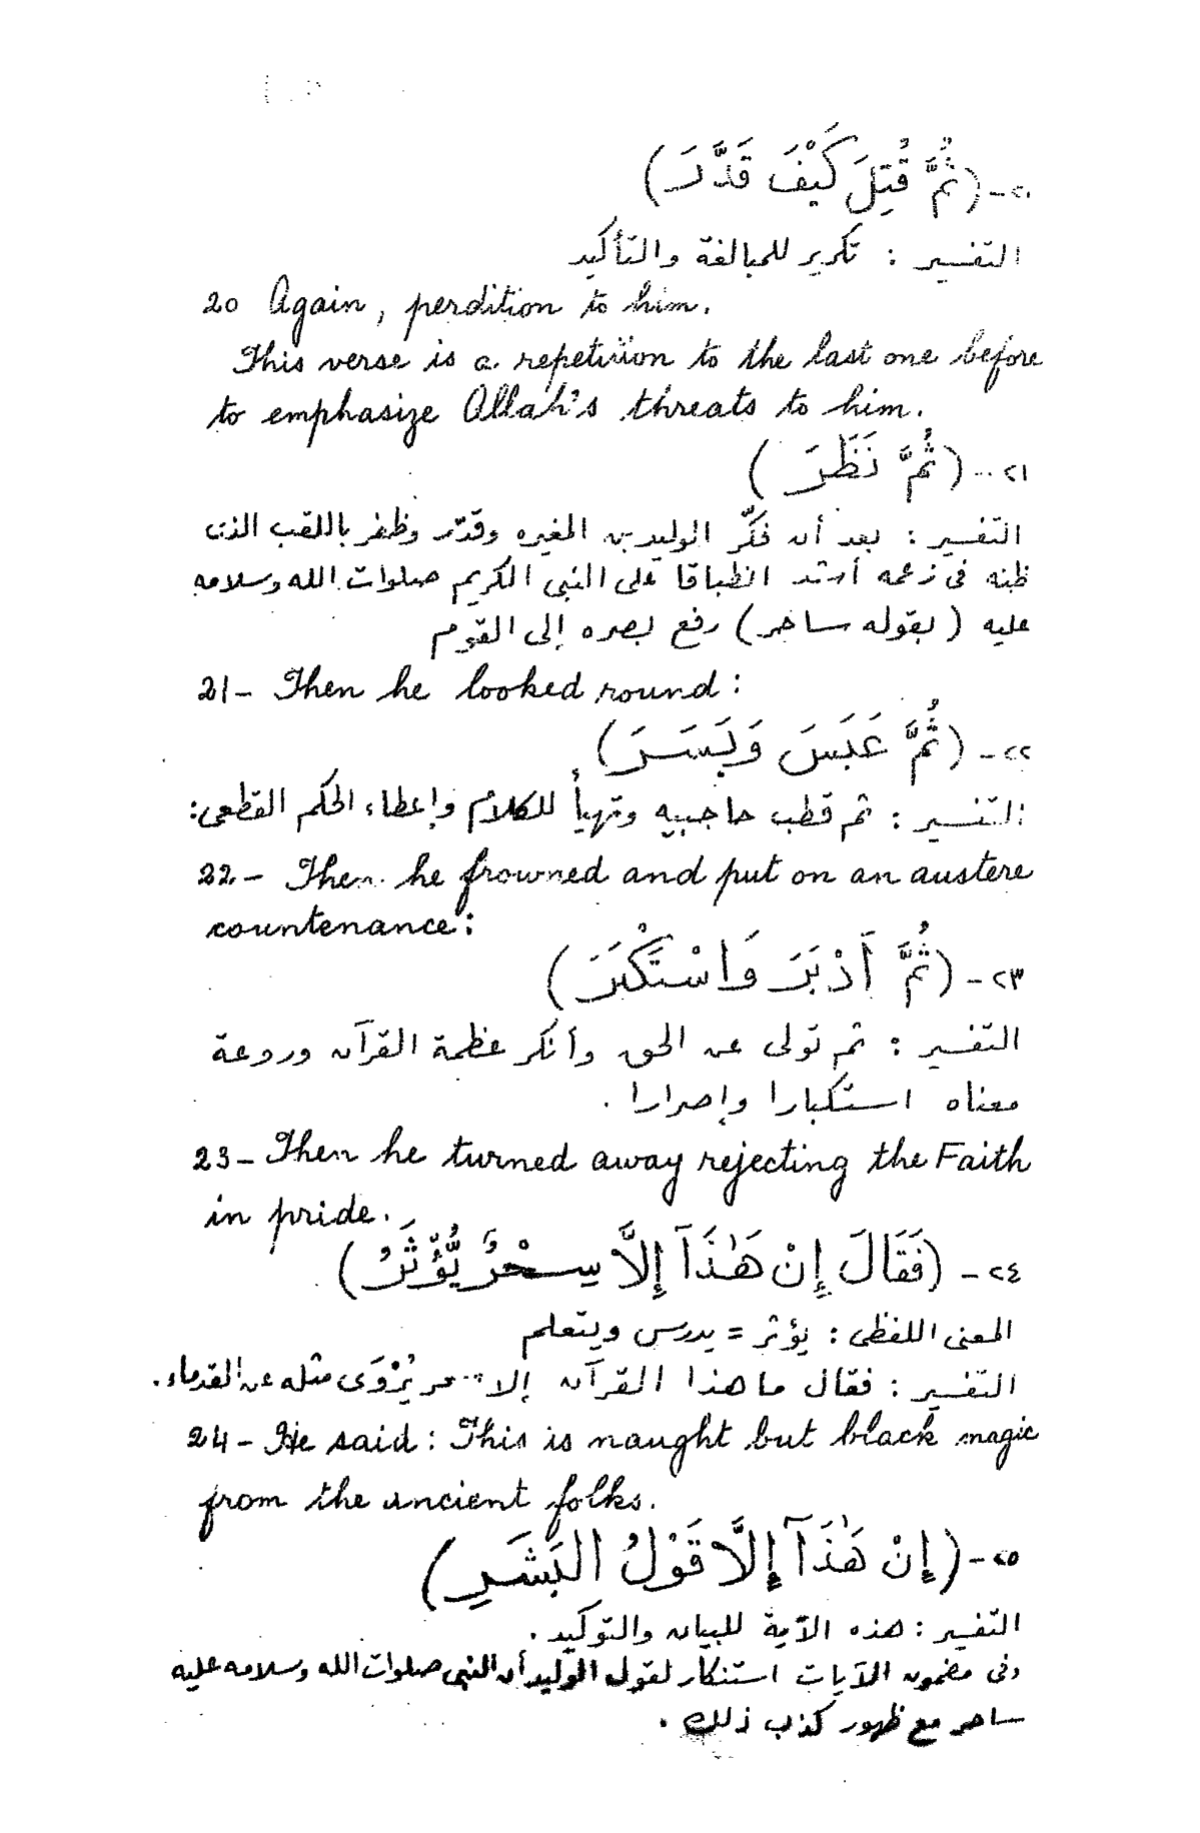 ٢٠- (ثُمَّ قُتِلَ كَيْفَ قَدَّرَ)
التفسير : تكرير للمبالغة والتأكيد
20 Again, perdition to him.
This verse is a repetition to the last one before
to emphasize Allah's threats to him.
٢١- (ثُمَّ نَظَرَ)
التفسير : بعد أن فكّر الوليد بن المغيره وقدّر وظفر باللقب الذى
ظنه فى زعمه أشد انطباقا على النبى الكريم صلوات الله وسلامه
عليه (بقوله ساحر) رفع بصره إلى القوم
21- Then he looked round :
٢٢- (ثُمَّ عَبَسَ وَبَسَرَ)
التفسير : ثم قطب حاجبيه وتهيأ للكلام وإعطاء الحكم القطعى:
22- Then he frowned and put on an austere
countenance :
٢٣- (ثُمَّ أَدْبَرَ وَاسْتَكْبَرَ)
التفسير : ثم تولى عن الحق وأنكر عظمة القرآن وروعة
معناه استكبارا وإصرارا .
23- Then he turned away rejecting the Faith
in pride.
٢٤- (فَقَالَ إِنْ هَٰذَآ إِلَّا سِحْرٌ يُؤْثَرُ)
المعنى اللفظى : يؤثر = يدرس ويتعلم
التفسير : فقال ما هذا القرآن إلا سحر يُرْوَى مثله عن القدماء .
24- He said : This is naught but black magic
from the ancient folks.
٢٥- (إِنْ هَٰذَآ إِلَّا قَوْلُ الْبَشَرِ)
التفسير : هذه الآية للبيان والتوكيد .
وفى مضمون الآيات استنكار لقول الوليد أن النبى صلوات الله وسلامه عليه
ساحر مع ظهور كذب ذلك .